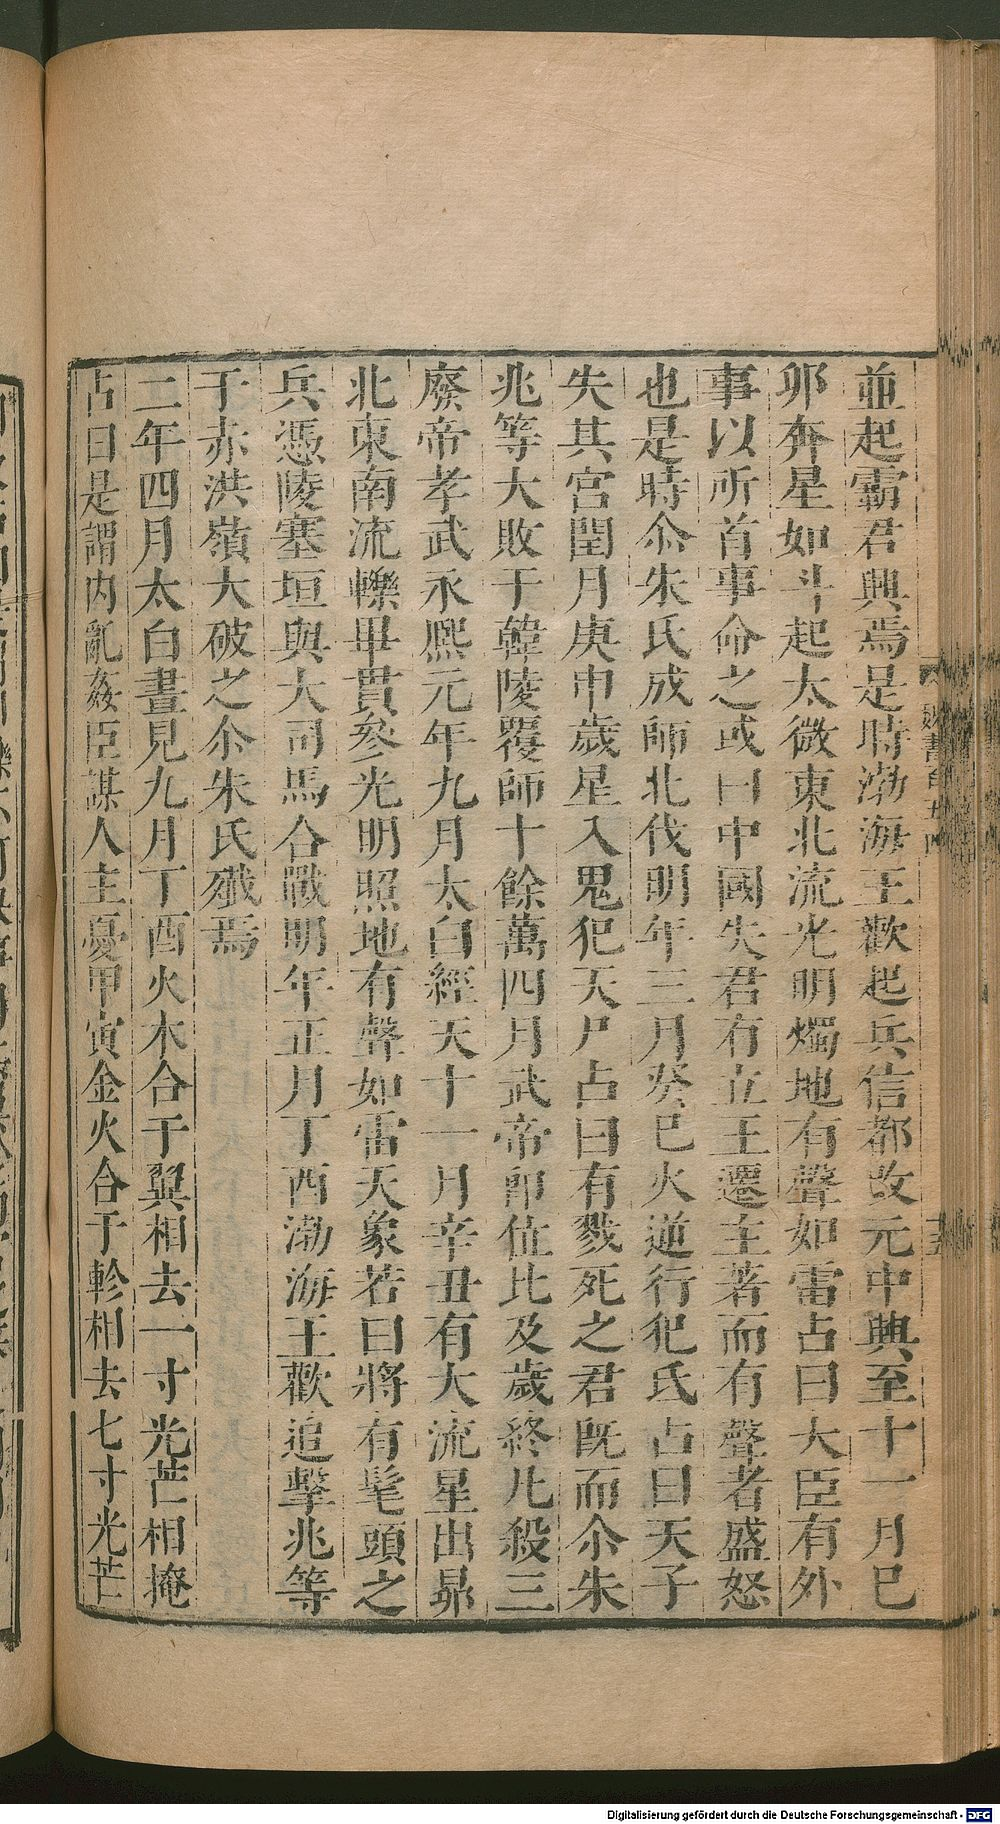 並起霸君興焉是時渤海王歡起兵信都改元中興至十一月巳
卯奔星如斗起太微東北流光明燭地有聲如雷占曰大臣有外
事以所首事命之或曰中國失君有立王遷主著而有聲者盛怒
也是時尒朱氏成師北伐明年三月癸巳火逆行犯氐占曰天子
失其宮閏月庚申歲星入鬼犯天尸占曰有戮死之君旣而尒朱
兆等大敗于韓陵覆師十餘萬四月武帝卽位比及歲終凡殺三
廢帝孝武永熙元年九月太白經天十一月辛丑有大流星出昴
北東南流轢畢貫參光明照地有聲如雷天象若曰將有髦頭之
兵憑陵塞垣與大司馬合戰明年正月丁酉渤海王歡追擊兆等
于赤洪嶺大破之尒朱氏殲焉
二年四月太白晝見九月丁酉火木合于翼相去一寸光芒相掩
占曰是謂內亂姦臣謀人主憂甲寅金火合于軫相去七寸光芒
Digitalisierung gefördert durch die Deutsche Forschungsgemeinschaft - DFG